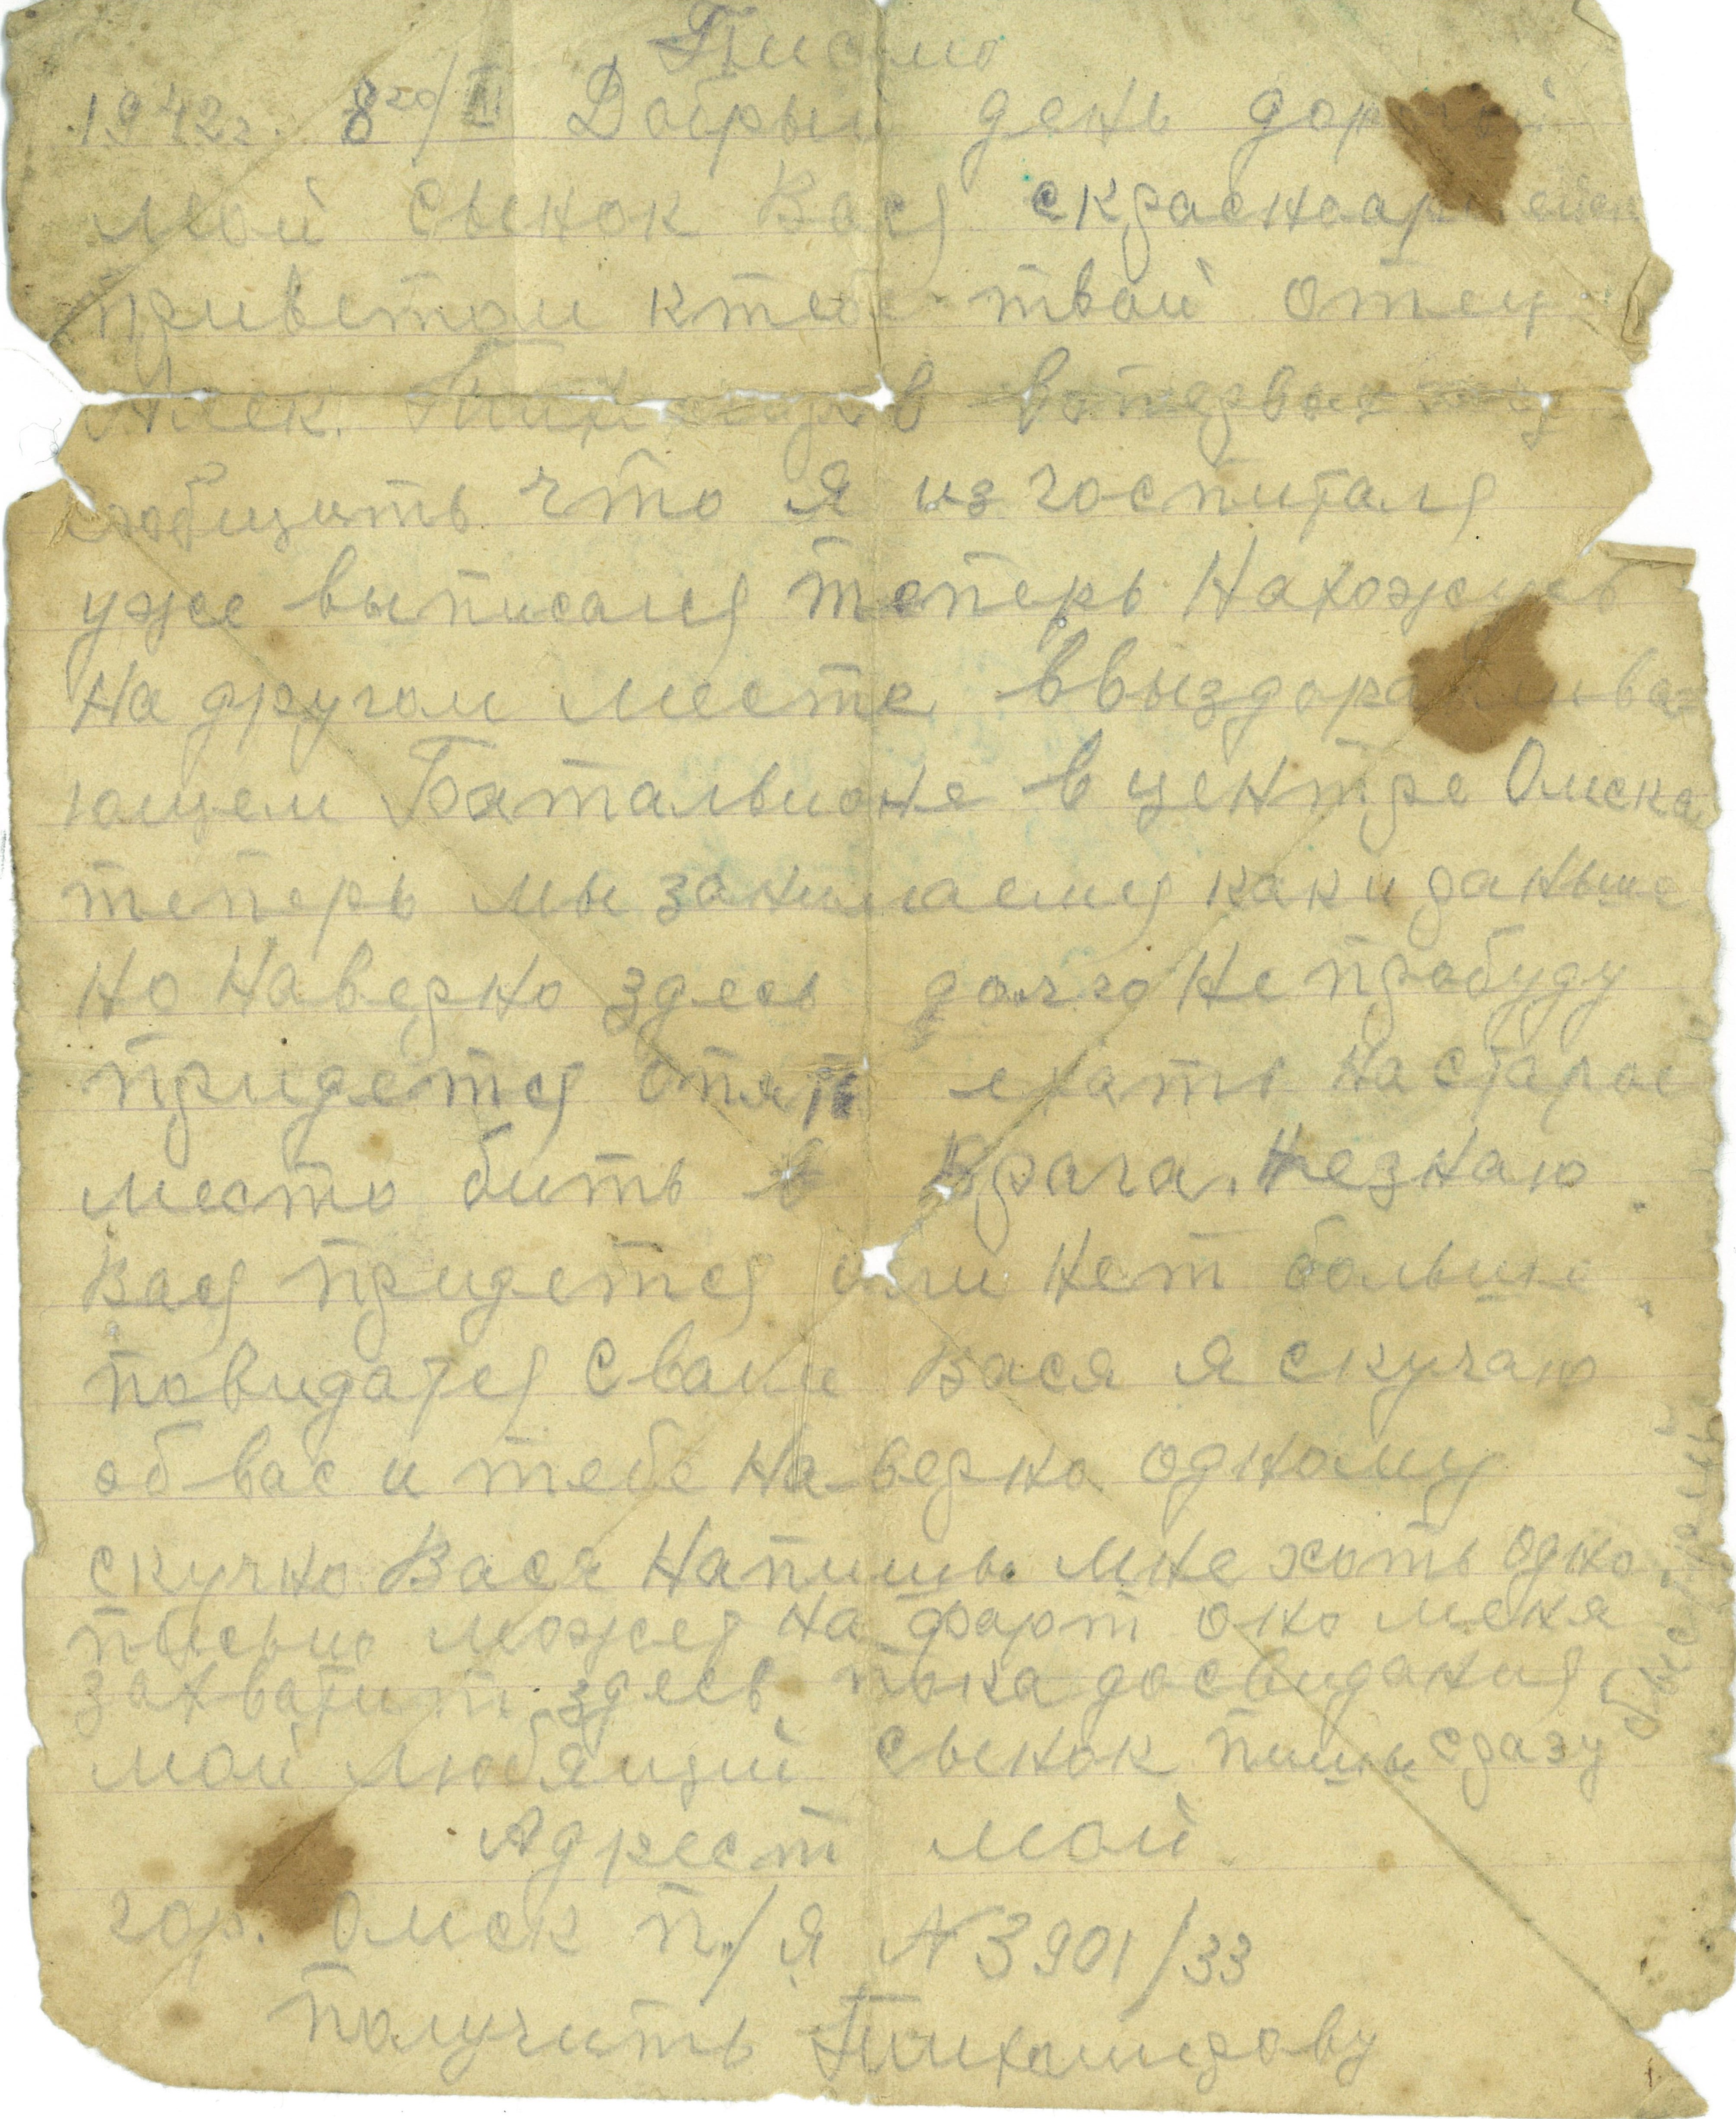 Писмо
1942г. Добрый день дорогой
мой сынок Вася скрасноармейск
приветом ктебе твой отец
Алек. Тихомиров вопервых хочу
сообщить что я из госпиталя
уже выписался теперь Нахожусь
На другом месте ввыздоравлива-
ющем Батальионе в центре Омска
теперь мы занимаемся как и раньше
Но Наверно здесь долго Не пробуду
придется опять ехать На старое
место бить Врага. Незнаю
Вася придется или Нет больше
повидатся с вами Вася я скучаю
об вас и тебе Наверно одному
скучно Вася Напишы мне хоть одно
письмо можед на фарт оно меня
захватит здесь пока досвидания
мой любящий сынок пишы сразу
Адрест мой
гор. Омск п/я N 3901/33
получить Тихомирову